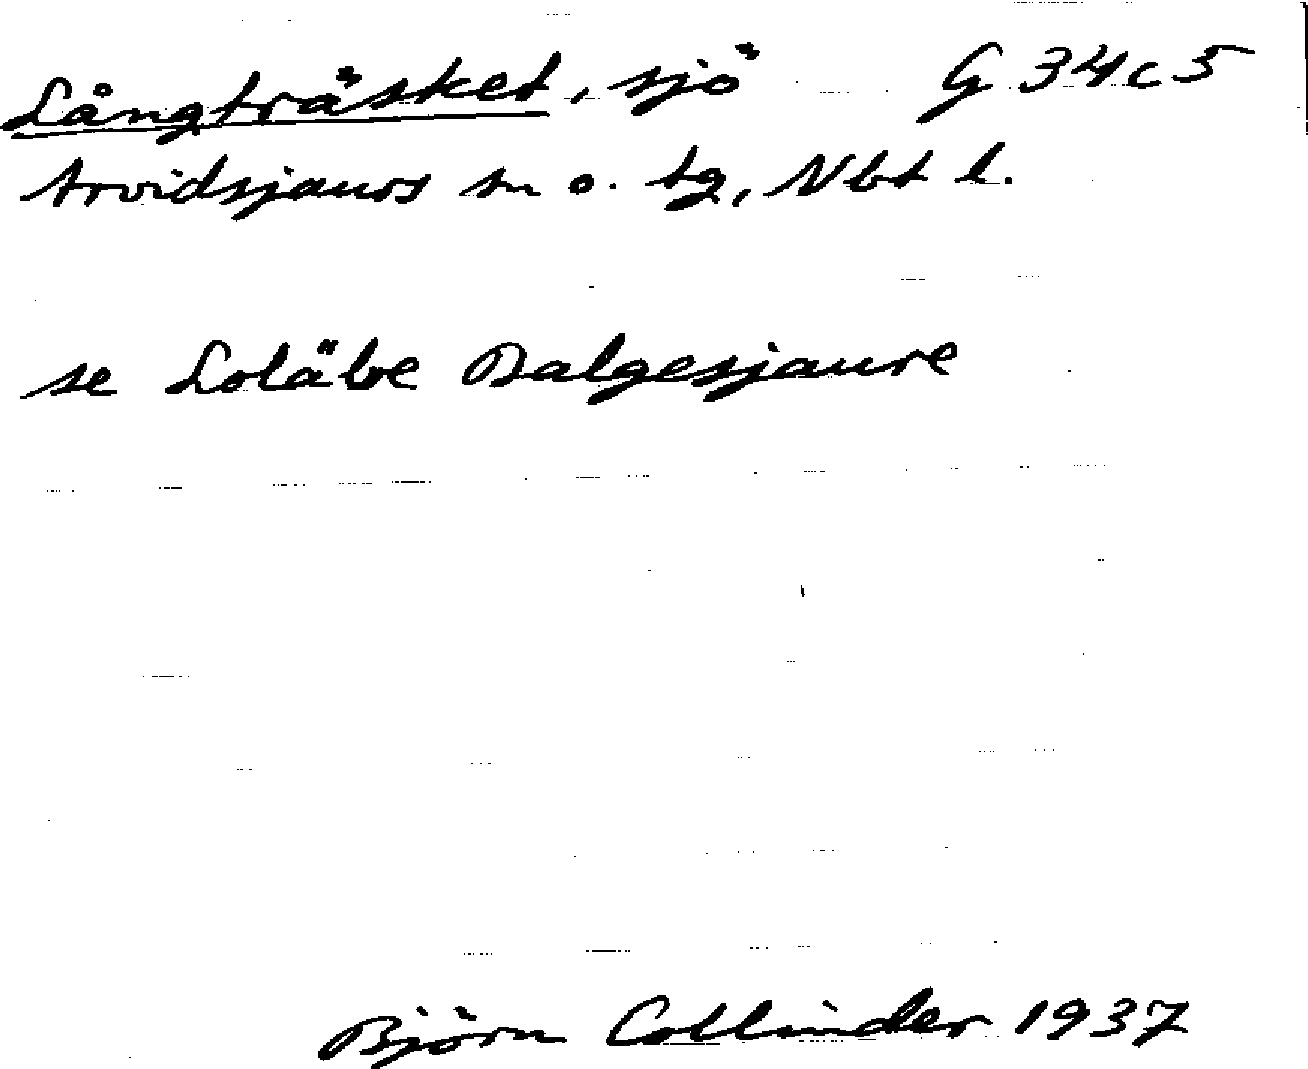 Långträsket, sjö G 34 c 5
Arvidsjaurs sn o. tg, Nbt l.
se Loläbe Balgesjaure
Björn Collinder 1937